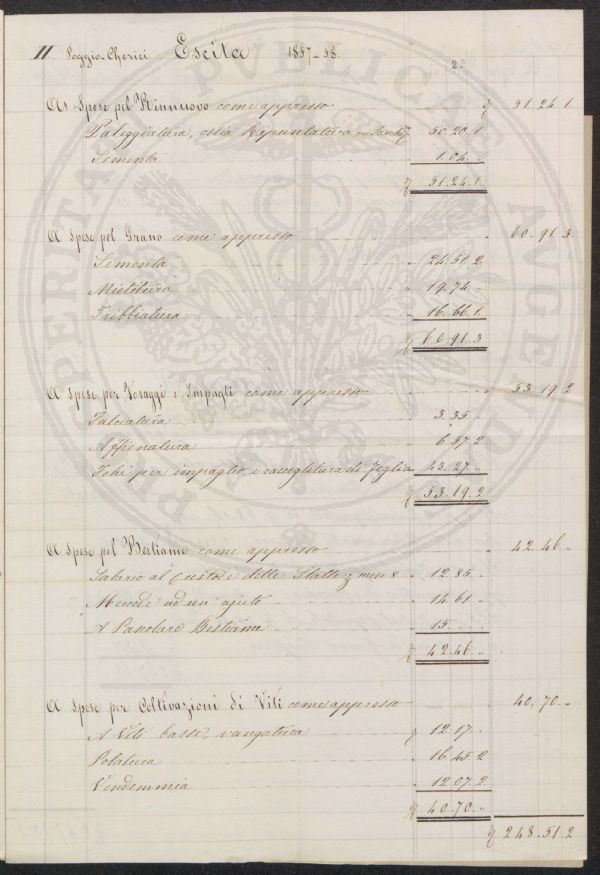 11 Poggio-Cherici Escita 1857-58.
As Spese pel Rinnuovo come appresso 51.24.1
Paleggiatura, ossia Repuntatura 50.20.1
Sementa 1.04.
51.24.1
A Spese pel Grano come appresso 60.91.3
Sementa 24.51.2
Mietitura 19.74
Tribbiatura 16.66.1
60.91.3
A Spese per Foraggi e Impagli come appresso 53.19.2
Falciatura 3.35
Affienatura 6.57.2
per impaglio, e raccoglitura di foglia 43.27
53.19.2
A Spese pel Bestiame come appresso 42.46
Salario al Custode delle Stalle mesi 8 12.85
Mercede ad un' ajuto 14.61
A Pascolare Bestiame 15
42.46
A Spese per Coltivazioni di Viti come appresso 40.70
A Viti basse vangatura 12.17
Potatura 16.45.2
Vendemmia 12.07.2
40.70
248.51.2